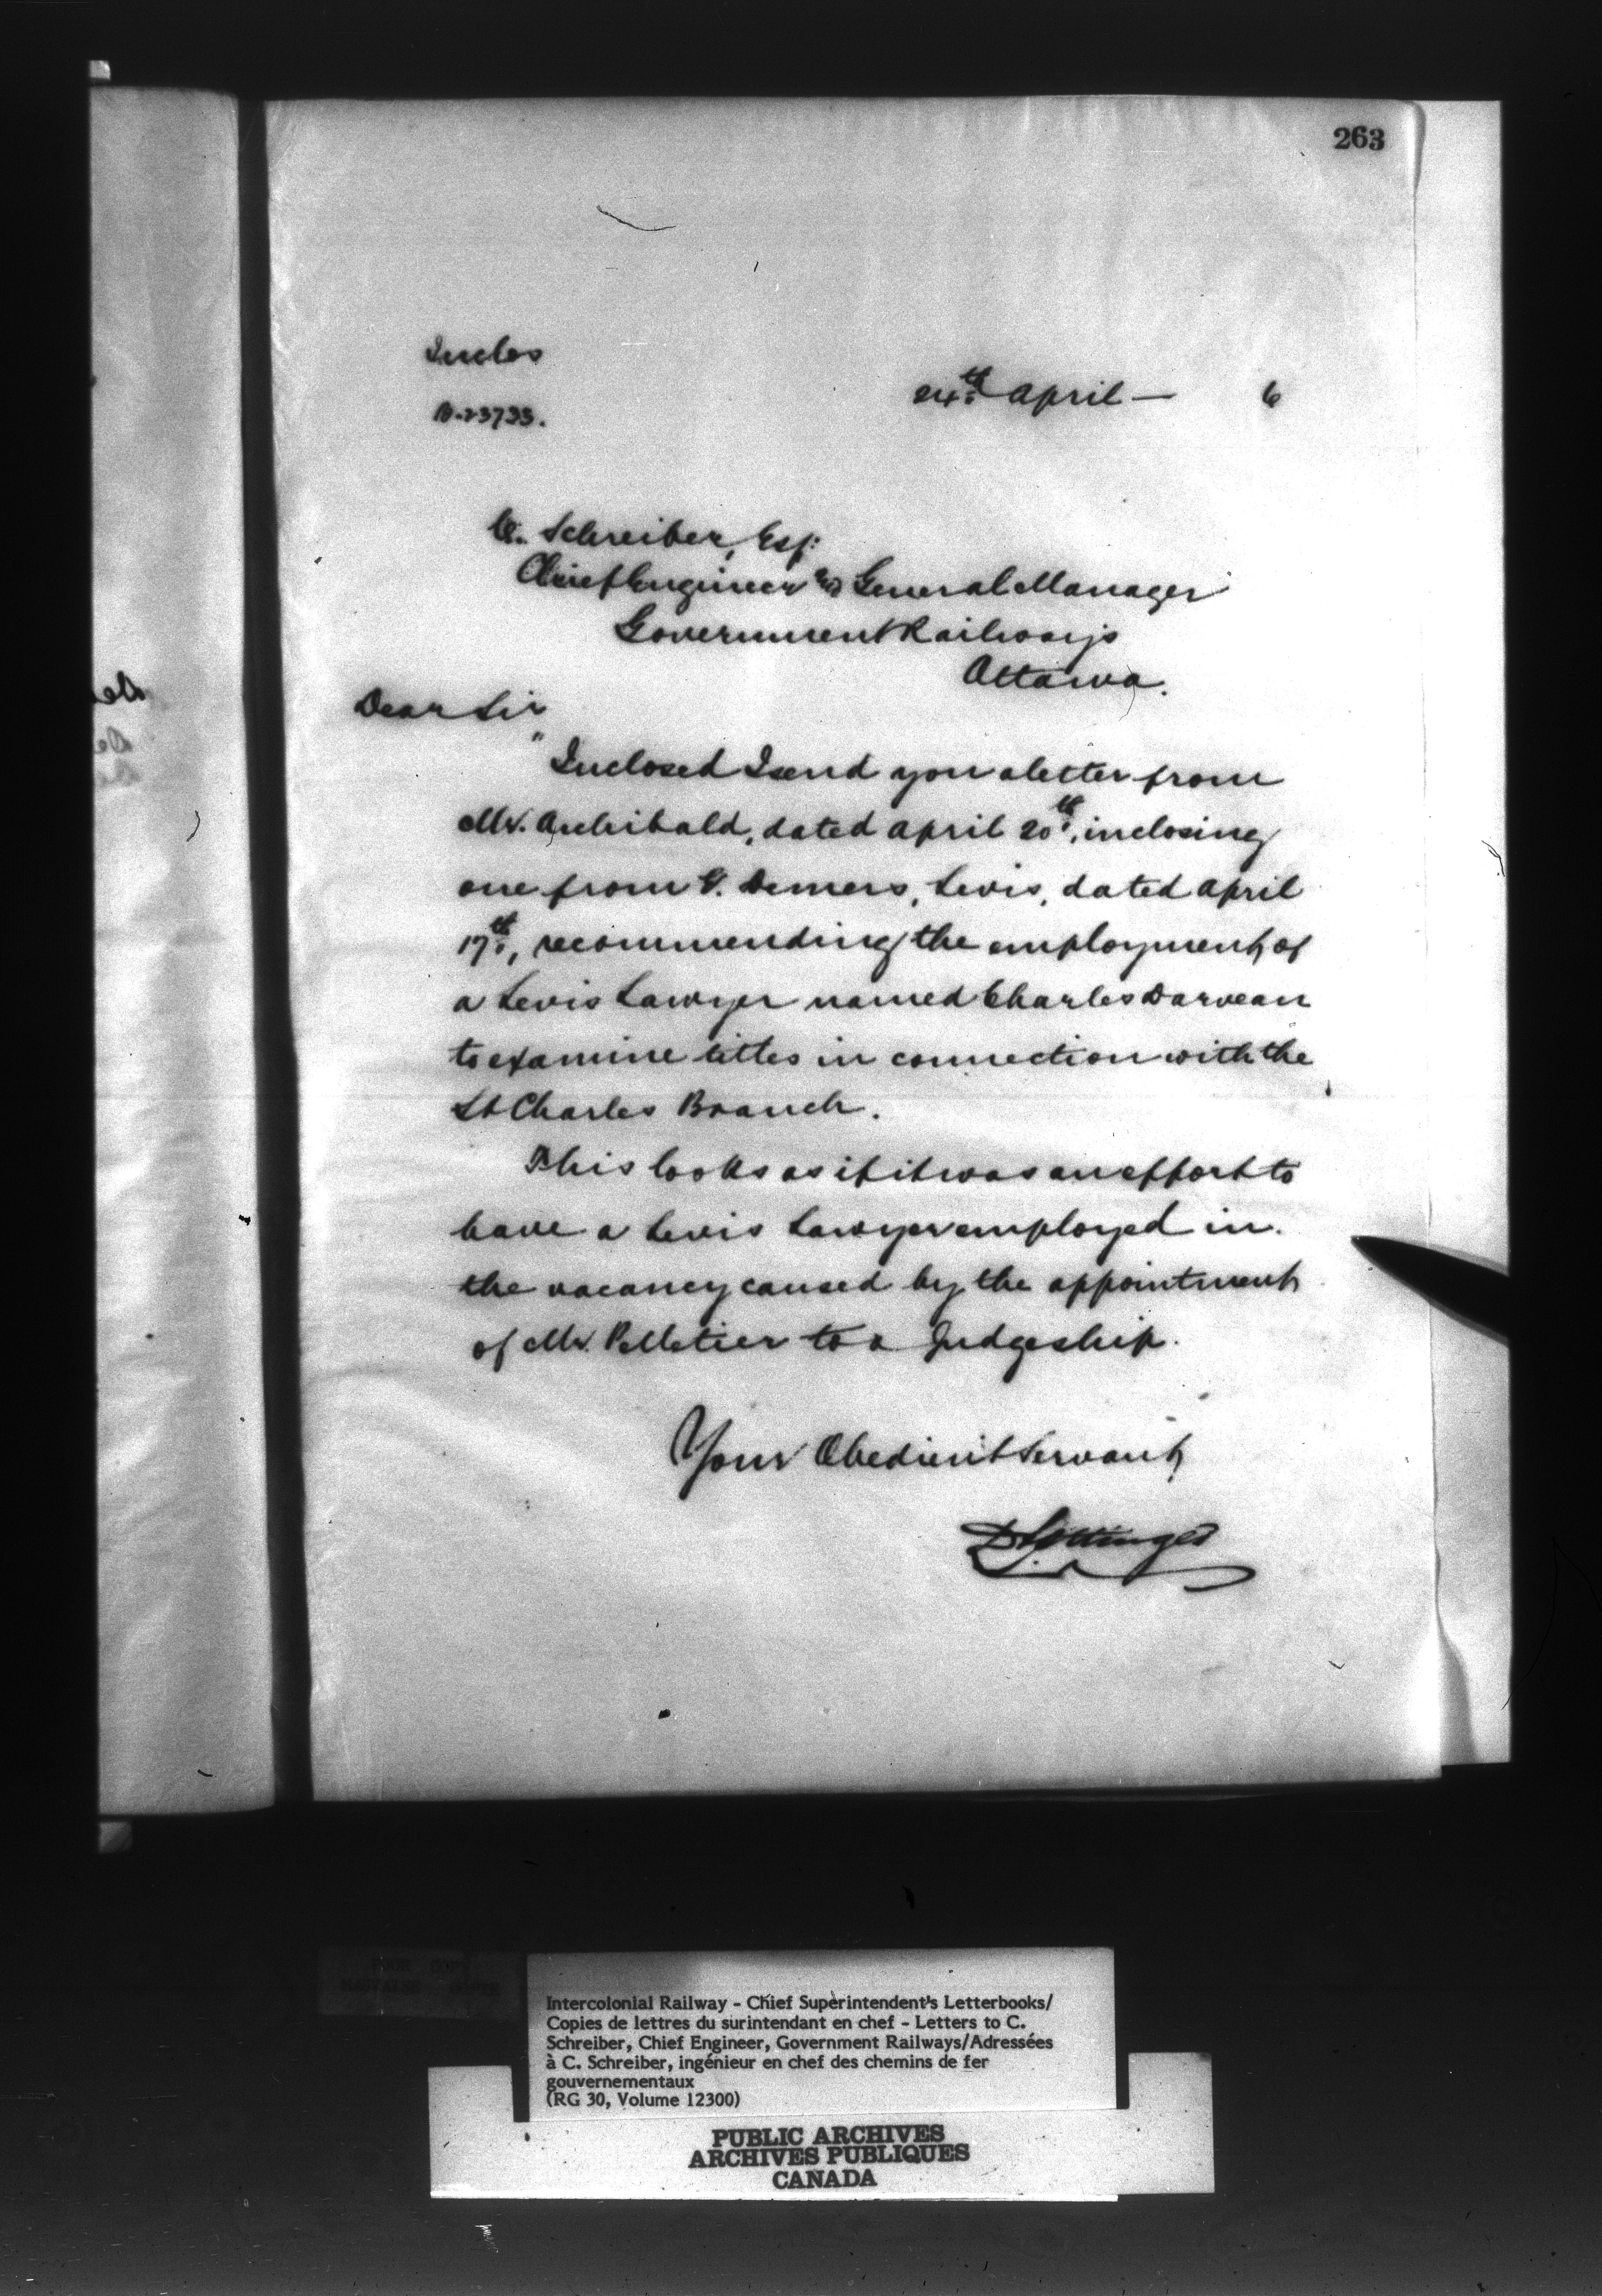 263
Inclos
24th April — 6
B-23733.
C. Schreiber, Esq:
Chief Engineer & General Manager
Government Railways
Ottawa.
Dear Sir
Inclosed I send you a letter from
Mr. Archibald, dated April 20th, inclosing
one from Demers, Levis, dated April
17th, recommending the employment of
a Levis Lawyer named Charles Darveau
to examine titles in connection with the
St Charles Branch.
This looks as if it was an effort to
have a Levis Lawyer employed in
the vacancy caused by the appointment
of Mr. Pelletier to a Judgeship.
Your Obedient Servant
D Pottinger
Intercolonial Railway - Chief Superintendent's Letterbooks/
Copies de lettres du surintendant en chef - Letters to C.
Schreiber, Chief Engineer, Government Railways/Adressées
à C. Schreiber, ingénieur en chef des chemins de fer
gouvernementaux
(RG 30, Volume 12300)
PUBLIC ARCHIVES
ARCHIVES PUBLIQUES
CANADA